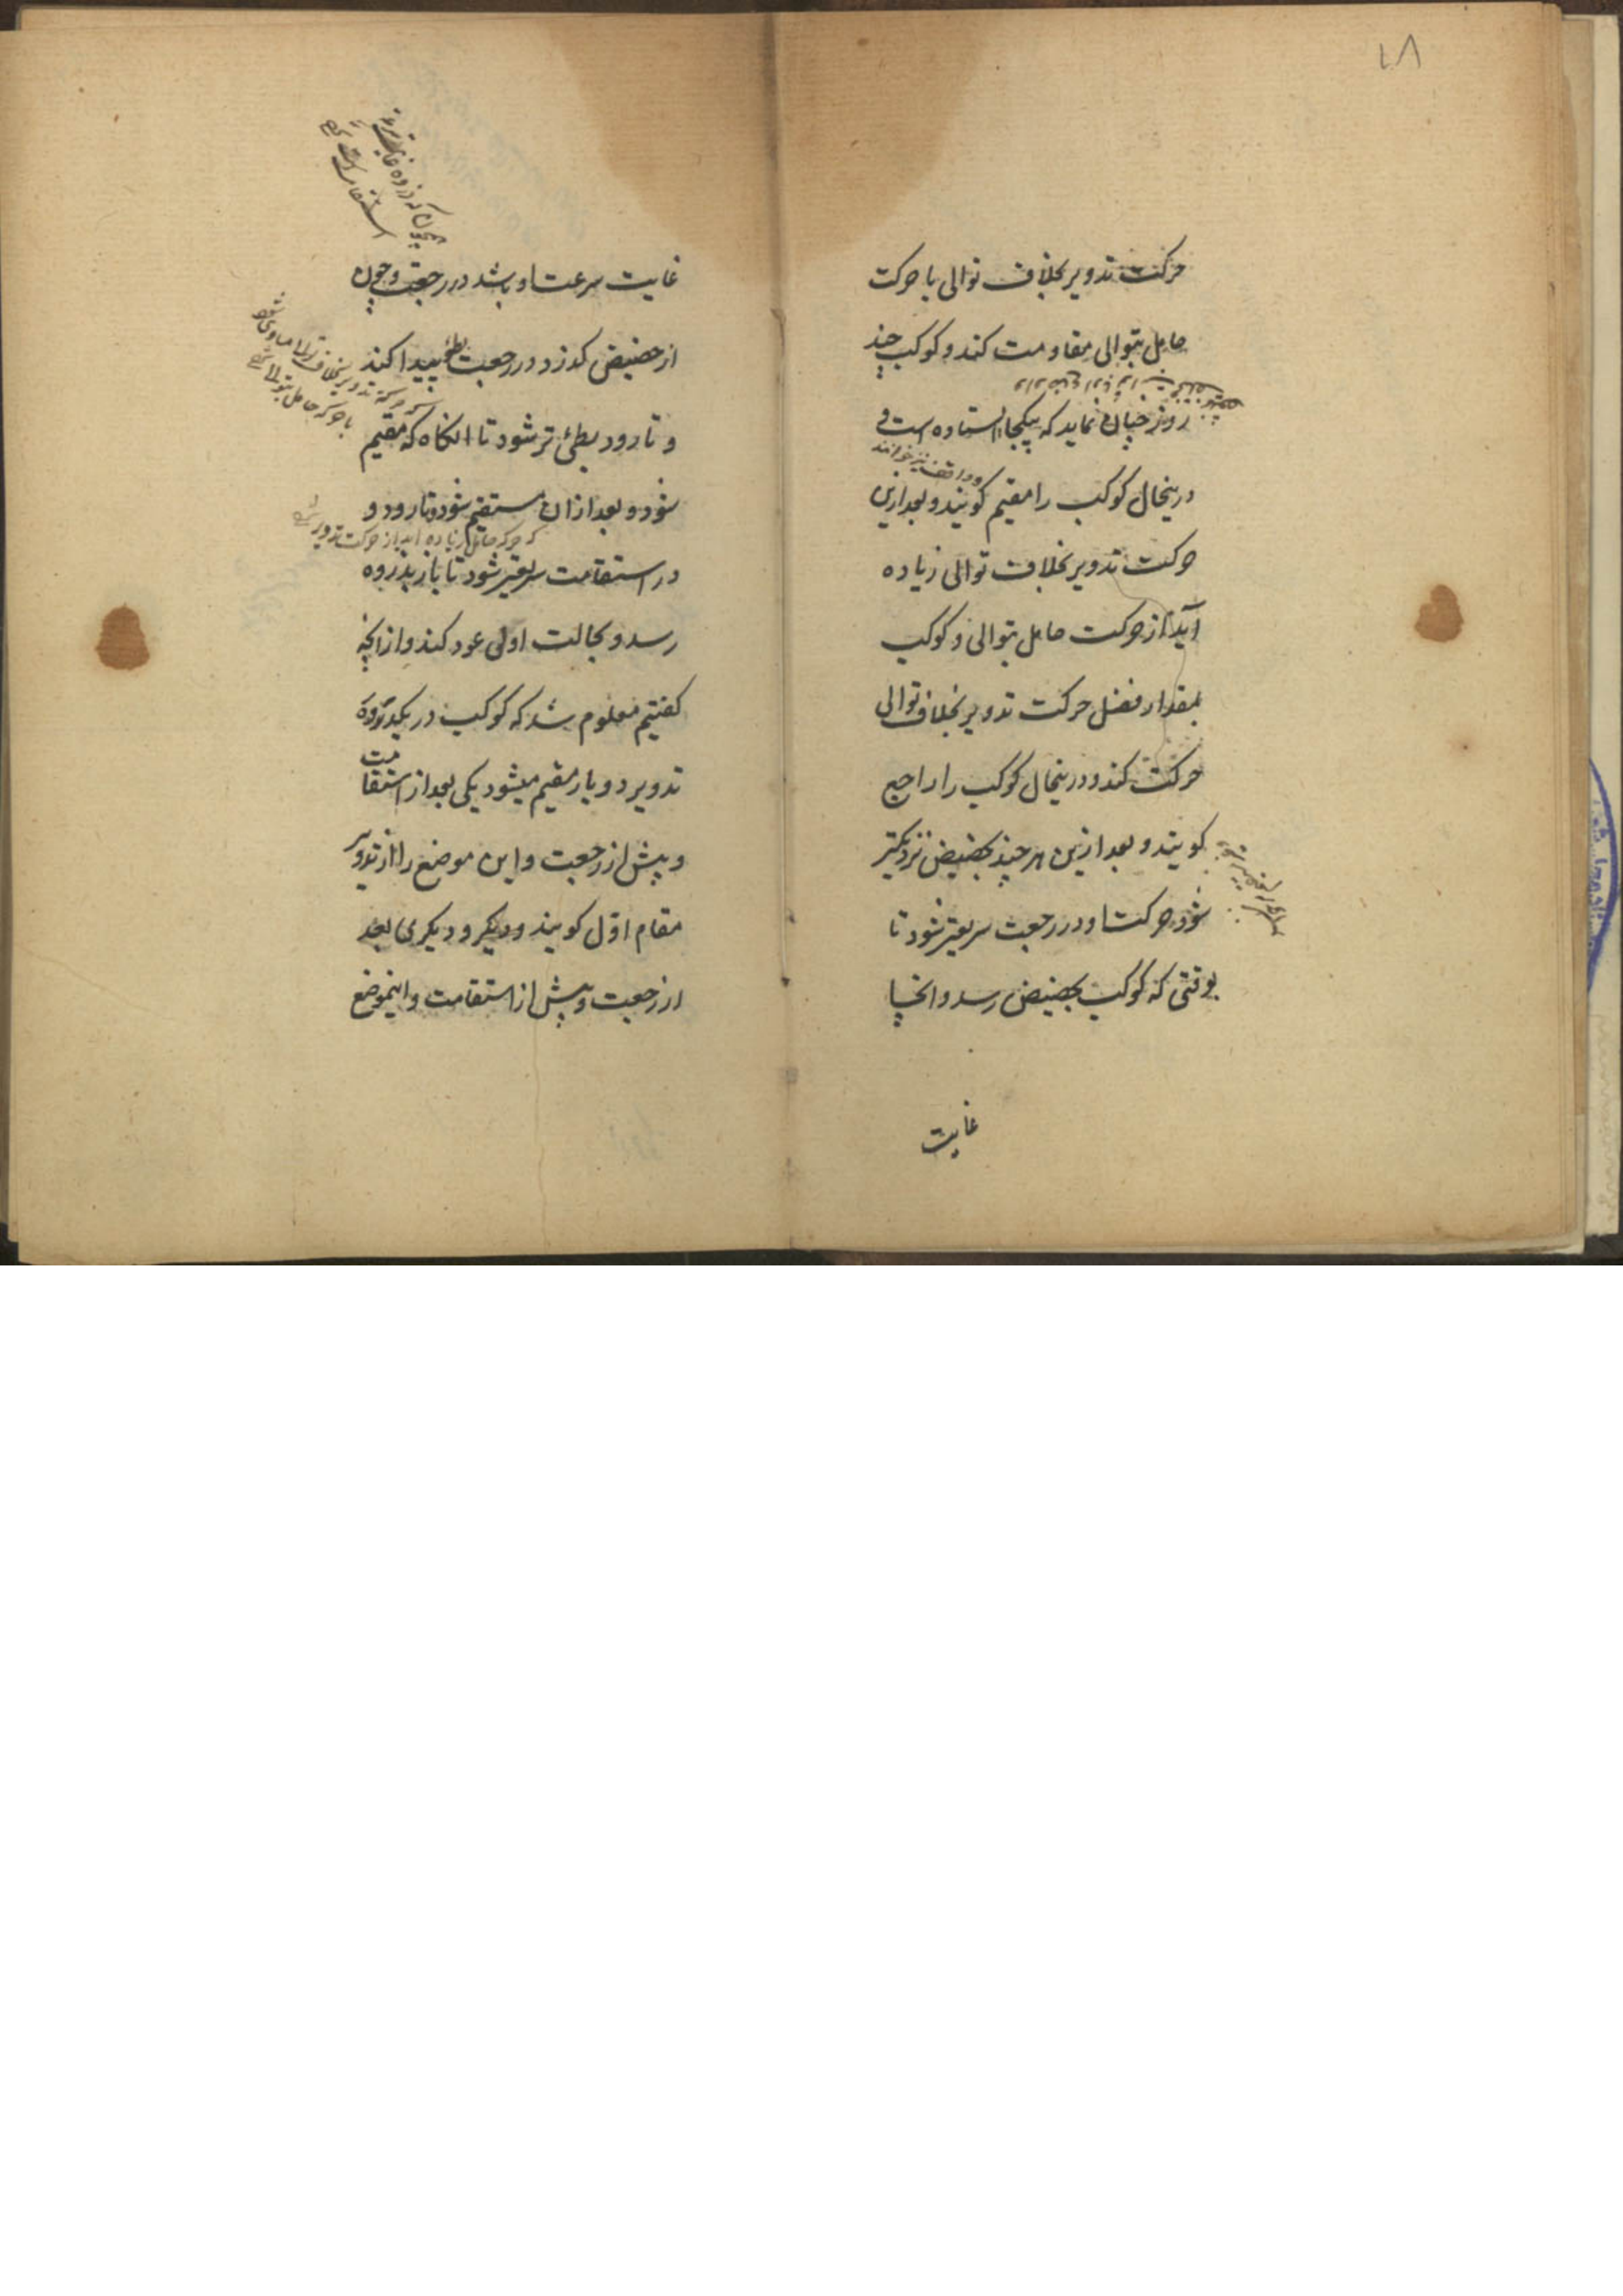 ۴۸
حرکت تدویر بخلاف توالی با حرکت
حامل بتوالی مقاومت کند و کوکب چند
روز چنان نماید که بیکجا ایستاده است و
و واقف نیز خوانند
درینحال کوکب را مقیم کویند و بعد ازین
حرکت تدویر بخلاف توالی زیاده
آید از حرکت حامل بتوالی و کوکب
بمقدار فضل حرکت تدویر بخلاف توالی
حرکت کند و درینحال کوکب را راجع
کویند و بعد ازین هر چند بحضیض نزدیکتر
شود حرکت او در رجعت سریعتر شود تا
بوقتی که کوکب بحضیض رسد و انجا
غایت
غایت سرعت او باشد در رجعت و چون
از حضیض کذرد در رجعت بطؤ پیدا کند
که حرکة تدویر بخلاف توالی مساوی شود
با حرکة حامل بتوالی
و تا رود بطئ تر شود تا انکاه که مقیم
شود و بعد ازان مستقیم شود و تا رود و
که حرکة حامل زیاده آید از حرکت تدویر
در استقامت سریعتر شود تا باز بذروه
رسد و بحالت اولی عود کند و از انچه
کفتیم معلوم شد که کوکب در یکدوره
تدویر دو بار مقیم میشود یکی بعد از استقامت
و پیش از رجعت و این موضع را از تدویر
مقام اوّل کویند و دیکر و دیکری بعد
از رجعت و پیش از استقامت و اینموضع